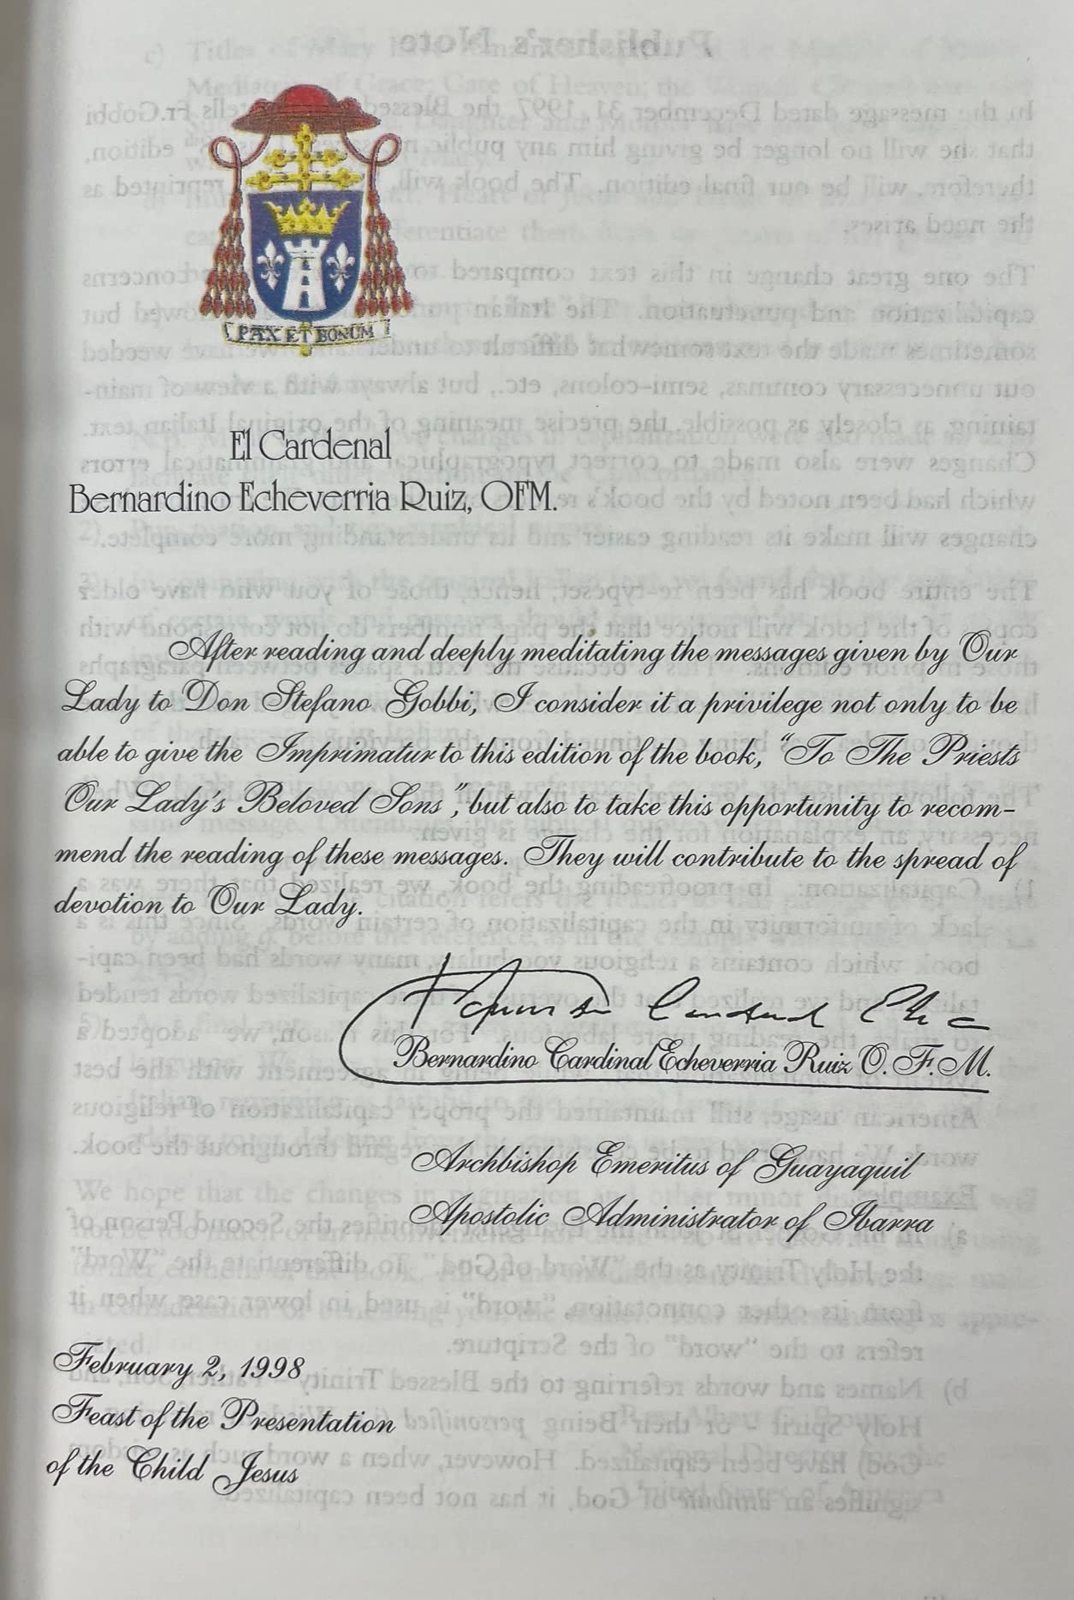 PAX ET BONUM
El Cardenal
Bernardino Echeverria Ruiz, OFM.
After reading and deeply meditating the messages given by Our
Lady to Don Stefano Gobbi, I consider it a privilege not only to be
able to give the Imprimatur to this edition of the book, "To The Priests
Our Lady's Beloved Sons", but also to take this opportunity to recom-
mend the reading of these messages. They will contribute to the spread of
devotion to Our Lady.
Bernardino Cardinal Echeverria Ruiz O. F. M.
Archbishop Emeritus of Guayaquil
Apostolic Administrator of Ibarra
February 2, 1998
Feast of the Presentation
of the Child Jesus